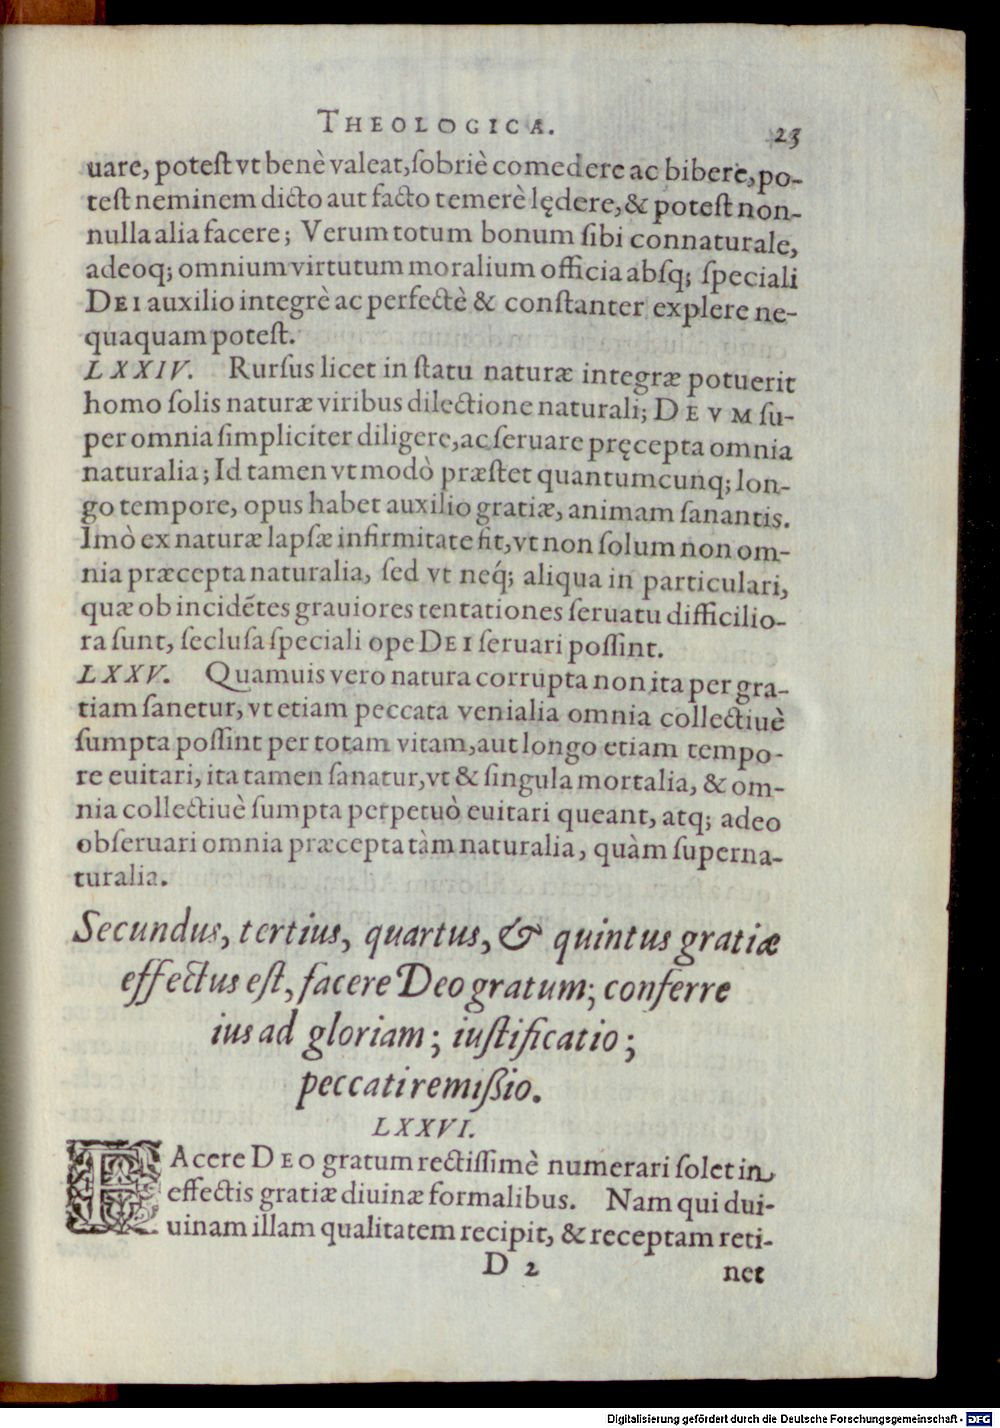 THEOLOGICÆ. 23
uare, potest vt benè valeat, sobriè comedere ac bibere, po-
test neminem dicto aut facto temerè lędere, & potest non-
nulla alia facere; Verum totum bonum sibi connaturale,
adeoq; omnium virtutum moralium officia absq; speciali
DEI auxilio integrè ac perfectè & constanter explere ne-
quaquam potest.
LXXIV. Rursus licet in statu naturæ integræ potuerit
homo solis naturæ viribus dilectione naturali; DEVM su-
per omnia simpliciter diligere, ac seruare pręcepta omnia
naturalia; Id tamen vt modò præstet quantumcunq; lon-
go tempore, opus habet auxilio gratiæ, animam sanantis.
Imò ex naturæ lapsæ infirmitate fit, vt non solum non om-
nia præcepta naturalia, sed vt neq́; aliqua in particulari,
quæ ob incidẽtes grauiores tentationes seruatu difficilio-
ra sunt, seclusa speciali ope DEI seruari possint.
LXXV. Quamuis vero natura corrupta non ita per gra-
tiam sanetur, vt etiam peccata venialia omnia collectiuè
sumpta possint per totam vitam, aut longo etiam tempo-
re euitari, ita tamen sanatur, vt & singula mortalia, & om-
nia collectiuè sumpta perpetuò euitari queant, atq; adeo
obseruari omnia præcepta tàm naturalia, quàm superna-
turalia.
Secundus, tertius, quartus, & quintus gratiæ
effectus est, facere Deo gratum; conferre
ius ad gloriam; iustificatio;
peccati remißio.
LXXVI.
FAcere DEO gratum rectissimè numerari solet in
effectis gratiæ diuinæ formalibus. Nam qui dui-
uinam illam qualitatem recipit, & receptam reti-
D 2 net
Digitalisierung gefördert durch die Deutsche Forschungsgemeinschaft - DFG